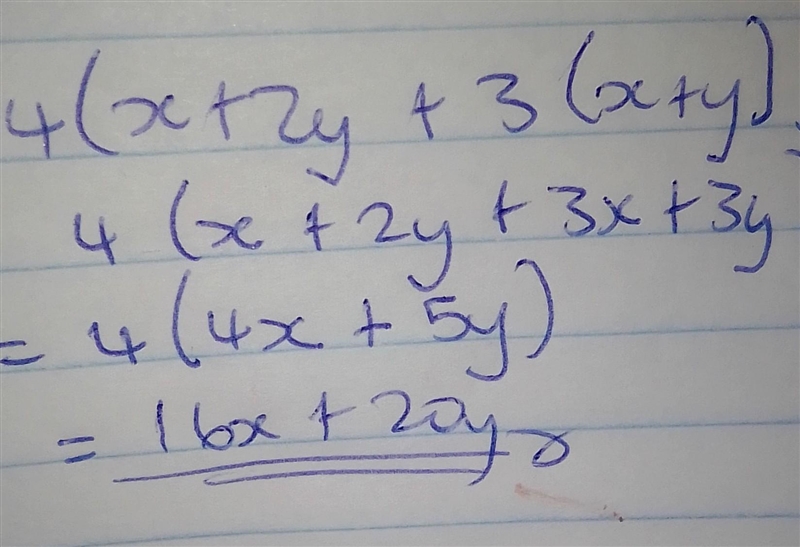 4(x+2y + 3(x+y)
4 (x + 2y + 3x + 3y
= 4(4x + 5y)
= 16x + 20y